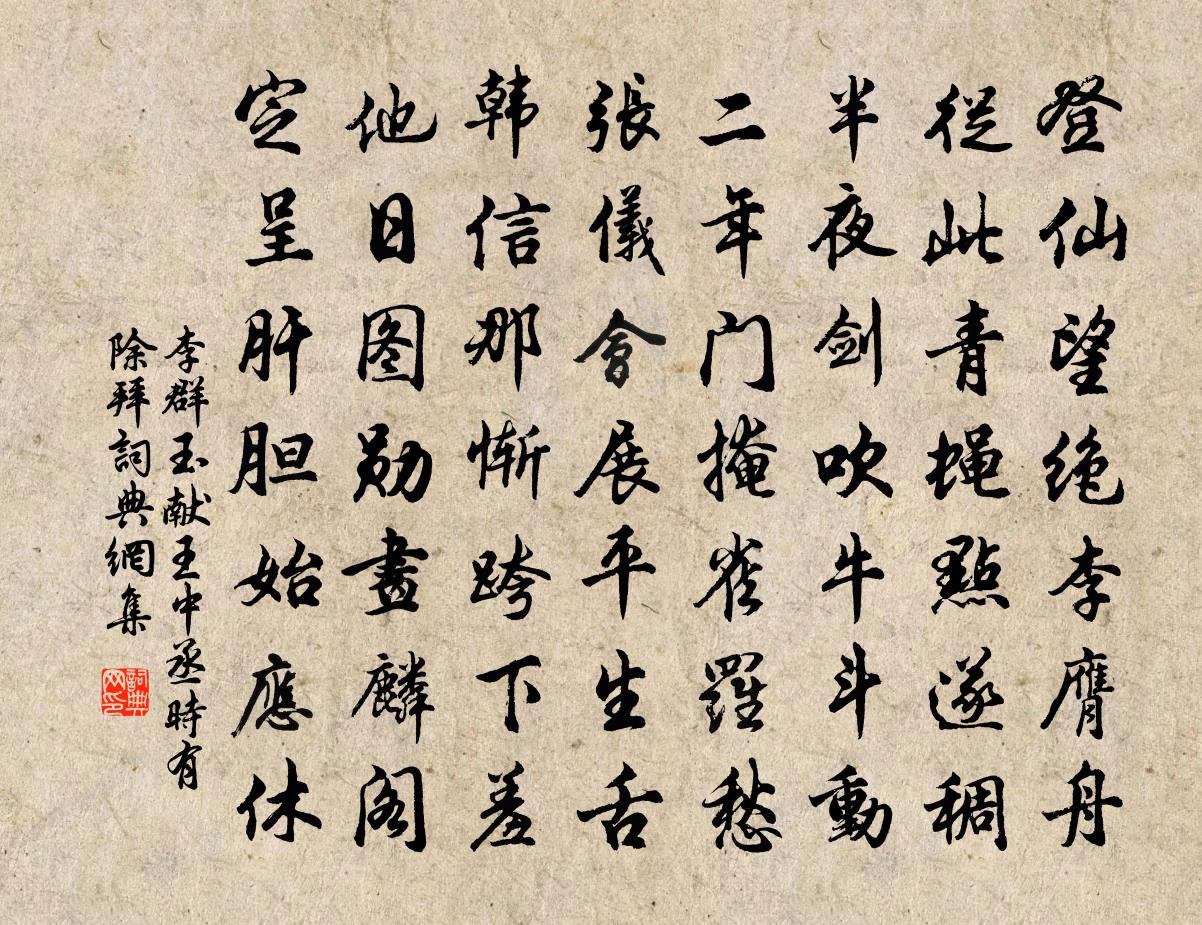 登仙望绝李膺舟
從此青蝇點遂稠
半夜剑吹牛斗動
二年门掩雀羅愁
張儀會展平生舌
韩信那慚跨下羞
他日图勋畫麟阁
定呈肝胆始應休
李群玉献王中丞時有
除拜詞典網集
詞典网印